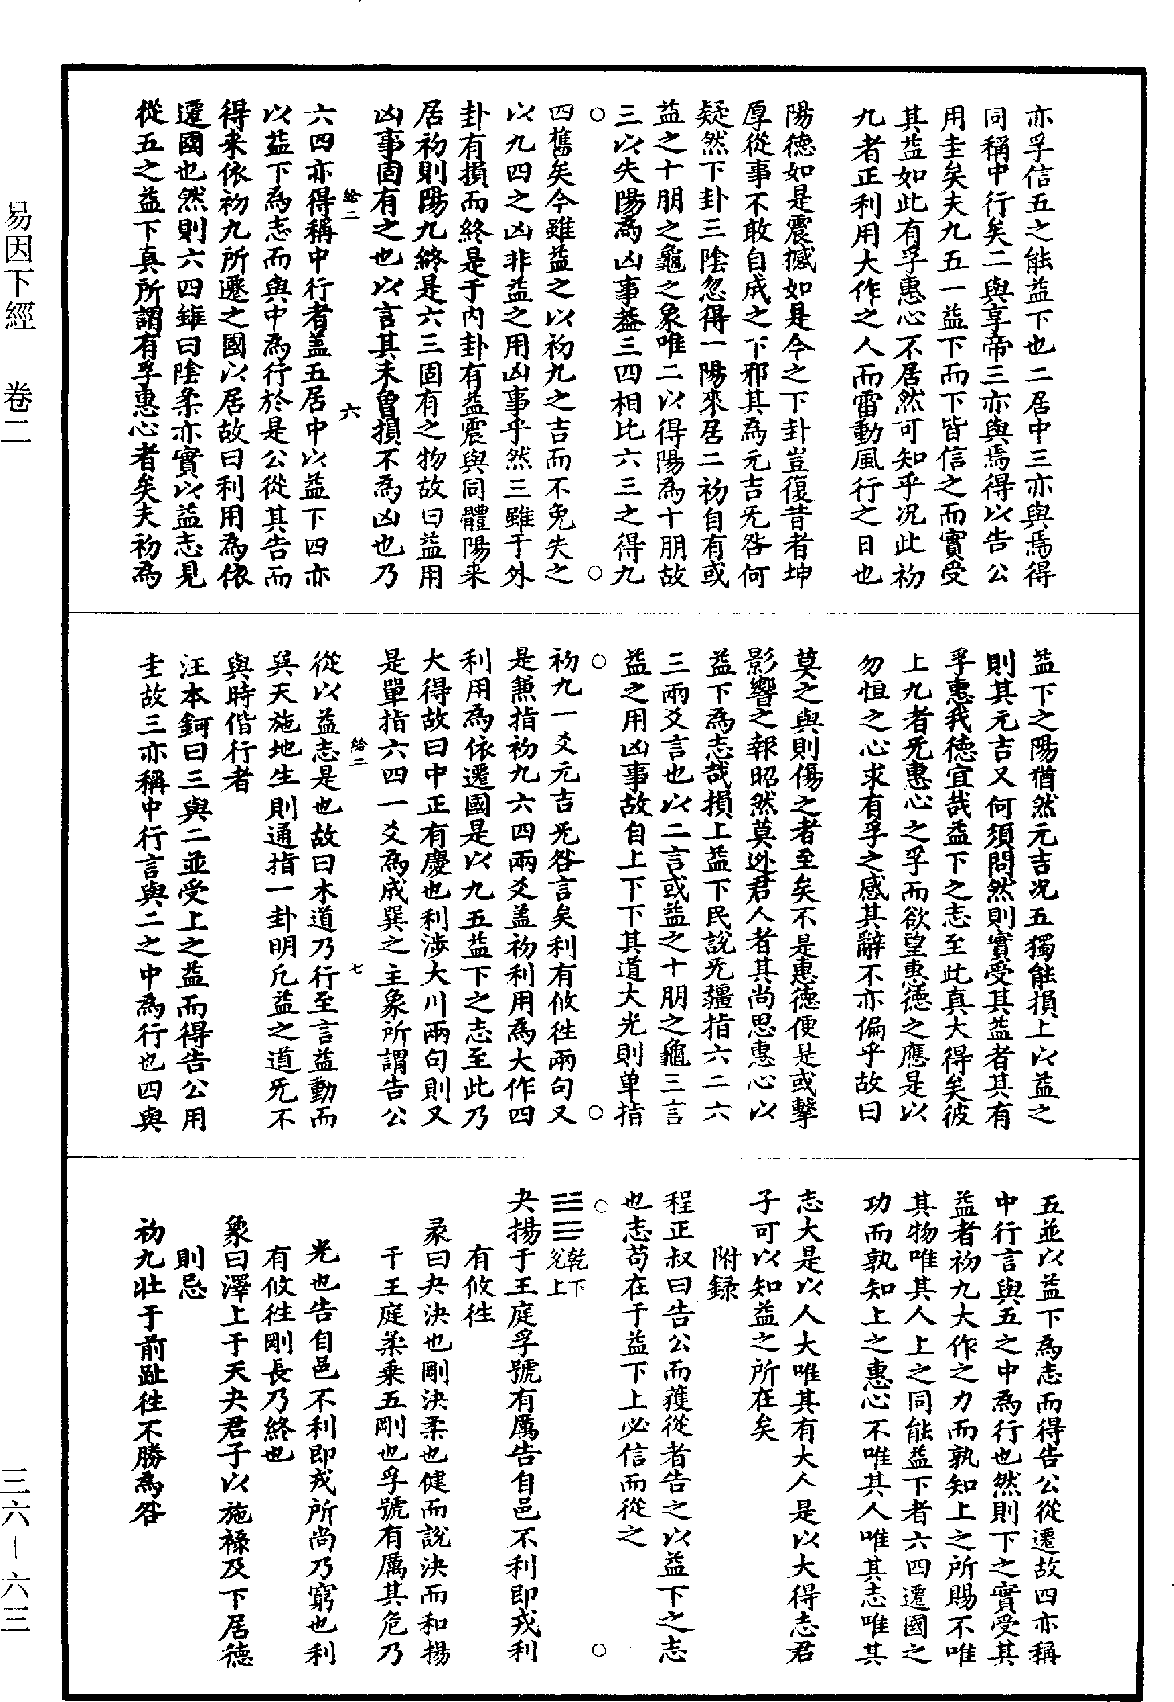 亦孚信五之能益下也二居中三亦與焉得
同稱中行矣二與享帝三亦與焉得以告公
用圭矣夫九五一益下而下皆信之而實受
其益如此有孚惠心不居然可知乎况此初
九者正利用大作之人而雷動風行之日也
陽德如是震撼如是今之下卦豈復昔者坤
厚從事不敢自成之下邪其為元吉旡咎何
疑然下卦三陰忽得一陽來居二初自有或
益之十朋之龜之象唯二以得陽為十朋故
三以失陽為凶事葢三四相比六三之得九
四舊矣今雖益之以初九之吉而不免失之
以九四之凶非益之用凶事乎然三雖于外
卦有損而終是于内卦有益震與同體陽来
居初則陽九終是六三固有之物故曰益用
凶事固有之也以言其未曾損不為凶也乃
六四亦得稱中行者盖五居中以益下四亦
以益下為志而與中為行於是公從其告而
得来依初九所遷之國以居故曰利用為依
遷國也然則六四雖曰陰柔亦實以益志見
從五之益下真所謂有孚惠心者矣夫初為
益下之陽猶然元吉况五獨能損上以益之
則其元吉又何須問然則實受其益者其有
孚惠我德宜哉益下之志至此真大得矣彼
上九者旡惠心之孚而欲望惠德之應是以
勿恒之心求有孚之感其辭不亦偏乎故曰
莫之與則傷之者至矣不是惠德便是或擊
影響之報昭然莫逃君人者其尚思惠心以
益下為志哉損上益下民說旡疆指六二六
三兩爻言也以二言或益之十朋之龜三言
益之用凶事故自上下下其道大光則单指
初九一爻元吉旡咎言矣利有攸徃兩句又
是兼指初九六四兩爻盖初利用為大作四
利用為依遷國是以九五益下之志至此乃
大得故曰中正有慶也利涉大川兩句則又
是單指六四一爻為成巽之主象所謂告公
從以益志是也故曰木道乃行至言益動而
巽天施地生則通指一卦明凢益之道旡不
與時偕行者
汪本鈳曰三與二並受上之益而得告公用
圭故三亦稱中行言與二之中為行也四與
五並以益下為志而得告公從遷故四亦稱
中行言與五之中為行也然則下之實受其
益者初九大作之力而孰知上之所賜不唯
其物唯其人上之同能益下者六四遷國之
功而孰知上之惠心不唯其人唯其志唯其
志大是以人大唯其有大人是以大得志君
子可以知益之所在矣
附録
程正叔曰告公而獲從者告之以益下之志
也志苟在于益下上必信而從之
乾下
兌上
夬揚于王庭孚號有厲告自邑不利即戎利
有攸徃
彖曰夬決也剛決柔也健而說決而和揚
于王庭柔乗五剛也孚號有厲其危乃
光也告自邑不利即戎所尚乃窮也利
有攸徃剛長乃終也
象曰澤上于天夬君子以施祿及下居德
則忌
初九壯于前趾徃不勝為咎
給二 六
給二 七
易因下經 卷二
三六－六三